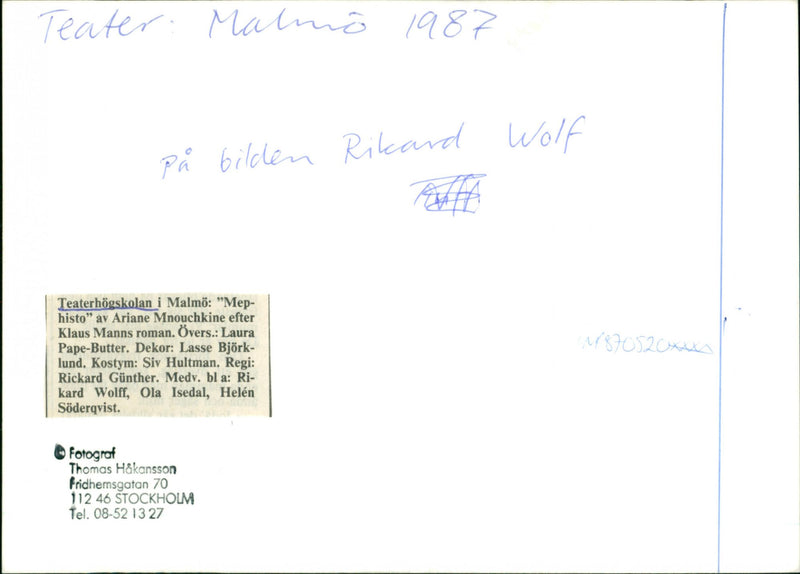 Teater: Malmö 1987
på bilden Rikard Wolf
Teaterhögskolan i Malmö: "Mep-
histo" av Ariane Mnouchkine efter
Klaus Manns roman. Övers.: Laura
Pape-Butter. Dekor: Lasse Björk-
lund. Kostym: Siv Hultman. Regi:
Rickard Günther. Medv. bl a: Ri-
kard Wolff, Ola Isedal, Helén
Söderqvist.
© Fotograf
Thomas Håkansson
Fridhemsgatan 70
112 46 STOCKHOLM
Tel. 08-52 13 27